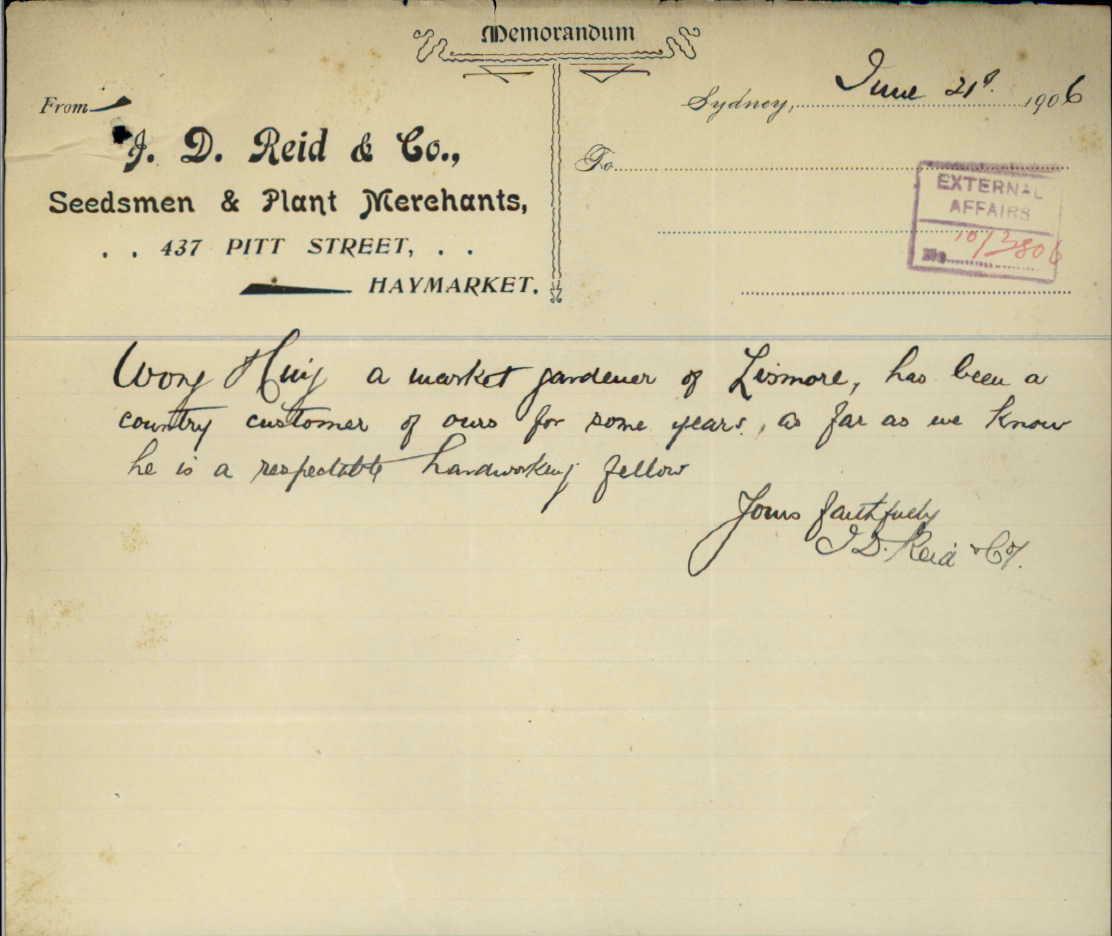 Memorandum
From
J. D. Reid & Co.,
Seedsmen & Plant Merchants,
. . 437 PITT STREET, . .
HAYMARKET.
Sydney, June 21st 1906
To
EXTERNAL
AFFAIRS
No. 10/3806
Wong Huiy a market gardener of Lismore, has been a
country customer of ours for some years, as far as we know
he is a respectable hardworking fellow
Yours faithfully
J D. Reid & Co.